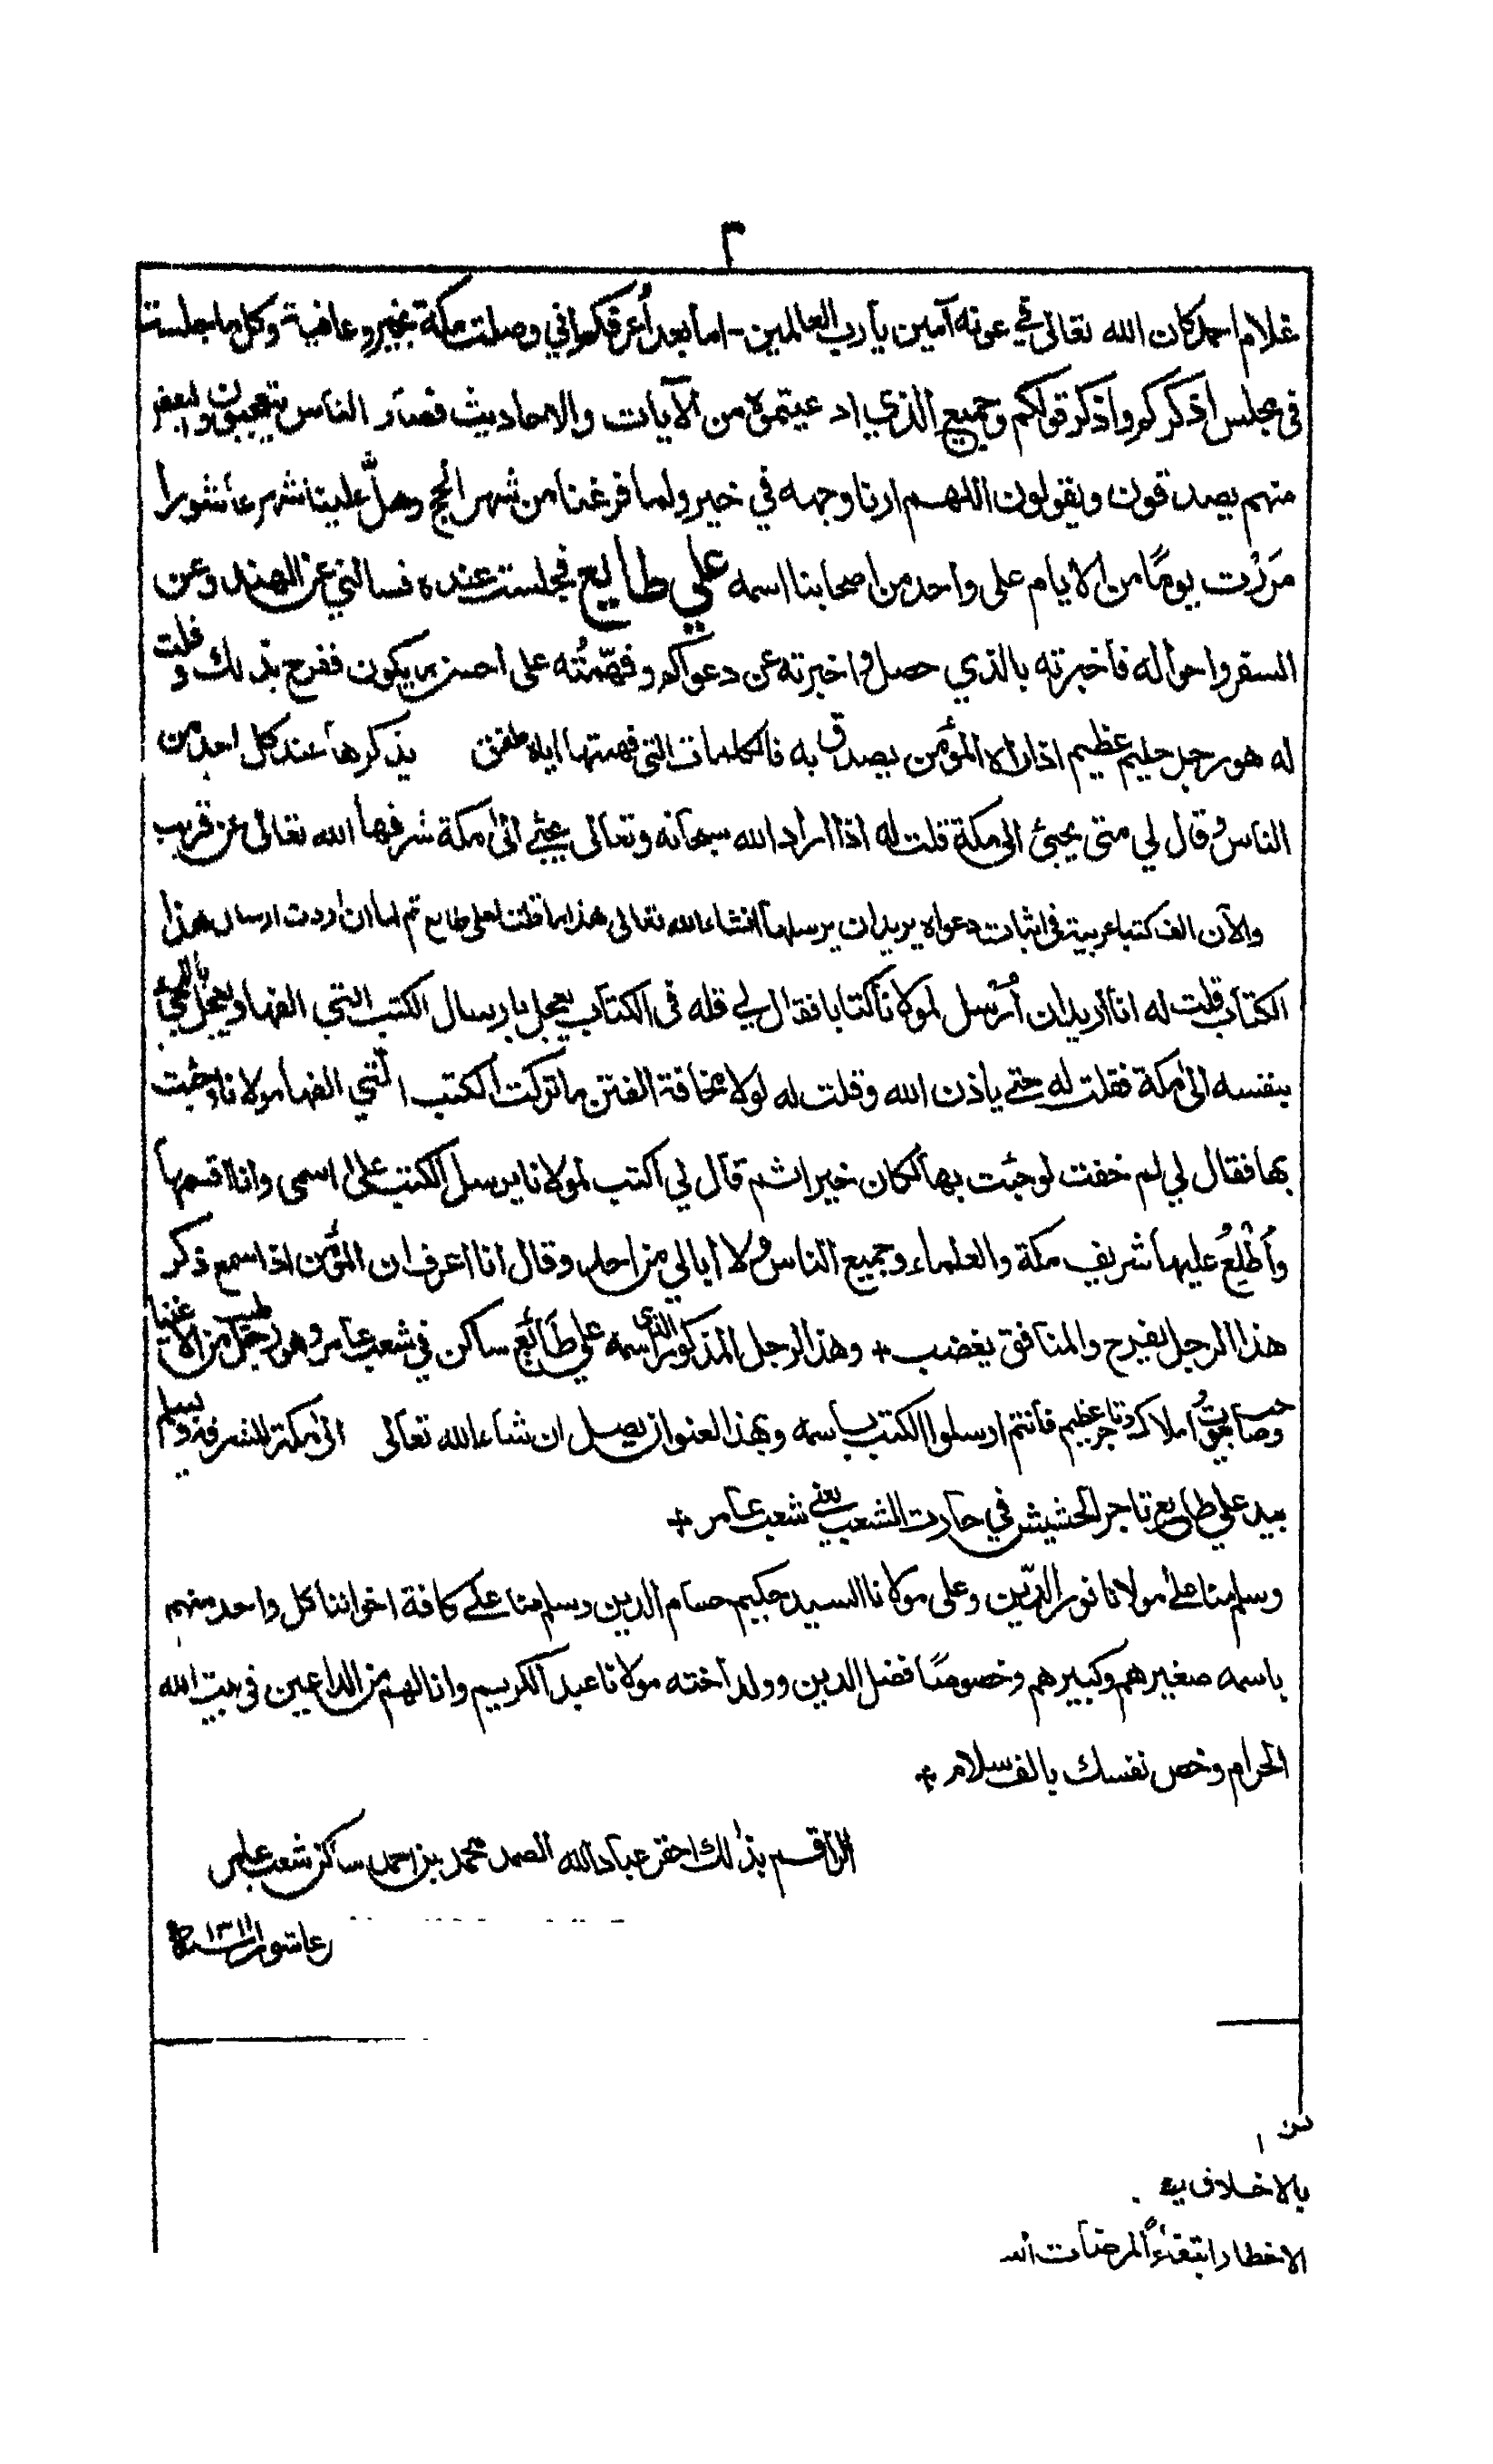 ٢
غلام احمد كان الله تعالى في عونه آمين يا رب العالمين - اما بعد أُعرفكم اني وصلت مكة بخير وعافية وكل ما جلست
في مجلس اذكركم واذكر قولكم وجميع الذي ادعيتموه من الآيات والاحاديث فصار الناس يتعجبون والبعض
منهم يصدقون ويقولون اللهم ارنا وجهه في خير ولما فرغنا من شهر الحج وهلَّ علينا شهر عاشورا
مَرَرْت يومًا من الايام على واحد من اصحابنا اسمه علي طايع فجلست عنده فسالني عن الهند وعن
السفر واحواله فاخبرته بالذي حصل واخبرته عن دعواكم وفهّمتُه على احسن ما يكون ففرح بذلك وقلت
له هو رجل حليم عظيم اذا راه المؤمن يصدق به فالكلمات التي فهمتها اياه طفق يذكرها عند كل احد من
الناس وقال لي متى يجيئ الى مكة قلت له اذا اراد الله سبحانه وتعالى يجئ الى مكة شرفها الله تعالى عن قريب
والآن الف كتبا عربية في اثبات دعواه يريد ان يرسلها انشاء الله تعالى هذا ما قلت لعلي طايع ثم لما ان اردت ارسال هذا
الكتاب قلت له انا اريد ان أُرْسل لمولانا كتابا فقال لي قله في الكتاب يعجل بارسال الكتب التي الفها ويعجل بالمجيئ
بنفسه الى مكة فقلت له حتى ياذن الله وقلت له لولا مخافة الفتن ما تركت الكتب التي الفها مولانا وجئت
بها فقال لي لم خفت لو جئت بها لكان خيرا ثم قال لي اكتب لمولانا يرسل الكتب على اسمى وانا اقسمها
وأُطْلِعُ عليها شريف مكة والعلماء وجميع الناس ولا ابالي من احد وقال انا اعرف ان المؤمن اذا سمع ذكر
هذا الرجل يفرح والمنافق يغضب + وهذا الرجل المذكور الذي اسمه علي طَائِع ساكن في شعب عامر وهو رجل طيب من الاغنيا
وصاحب بيوت واملاك وتاجر عظيم فأنتم ارسلوا الكتب باسمه وبهذا العنوان يصل ان شاء الله تعالى الى مكة المشرفة ويسلم
بيد علي طايع تاجر الحشيش في حارت الشعب يعني شعب عامر +
وسلم منا على مولانا نور الدّين وعلى مولانا السيد حكيم حسام الدين وسلم منا على كافة اخواننا كل واحد منهم
باسمه صغيرهم وكبيرهم وخصوصًا فضل الدين وولد اخته مولانا عبد الكريم وانا لهم من الداعين في بيت الله
الحرام وخص نفسك بالف سلام +
الراقم بذلك احقر عباد الله الصمد محمد بن احمد ساكن شعب عامر
عاشور سنة ١٣١١ه
بالاخلاف
الاخطار ابتغاءً لمرضات الله